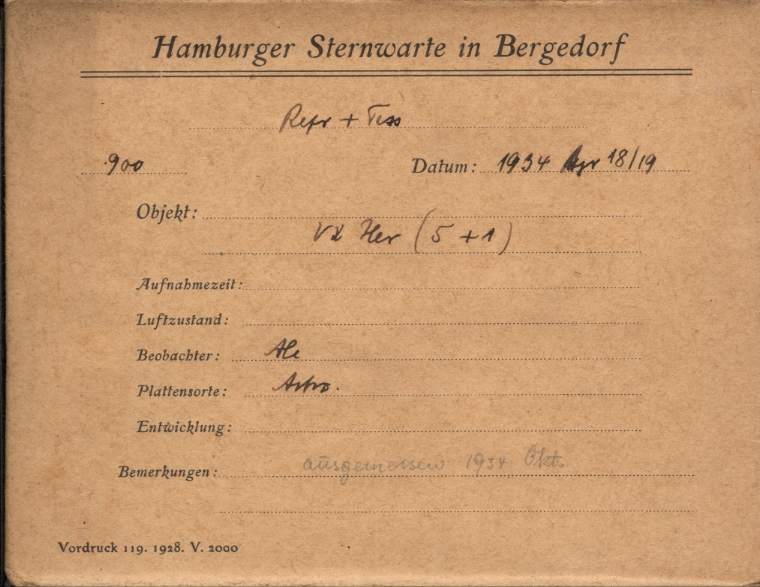 Hamburger Sternwarte in Bergedorf
Refr + Tess
900 Datum: 1934 Apr 18/19
Objekt:
VX Her (5 + 1)
Aufnahmezeit:
Luftzustand:
Beobachter:
Plattensorte: Astro.
Entwicklung:
Bemerkungen: ausgemessen 1934 Okt.
Vordruck 119. 1928. V. 2000